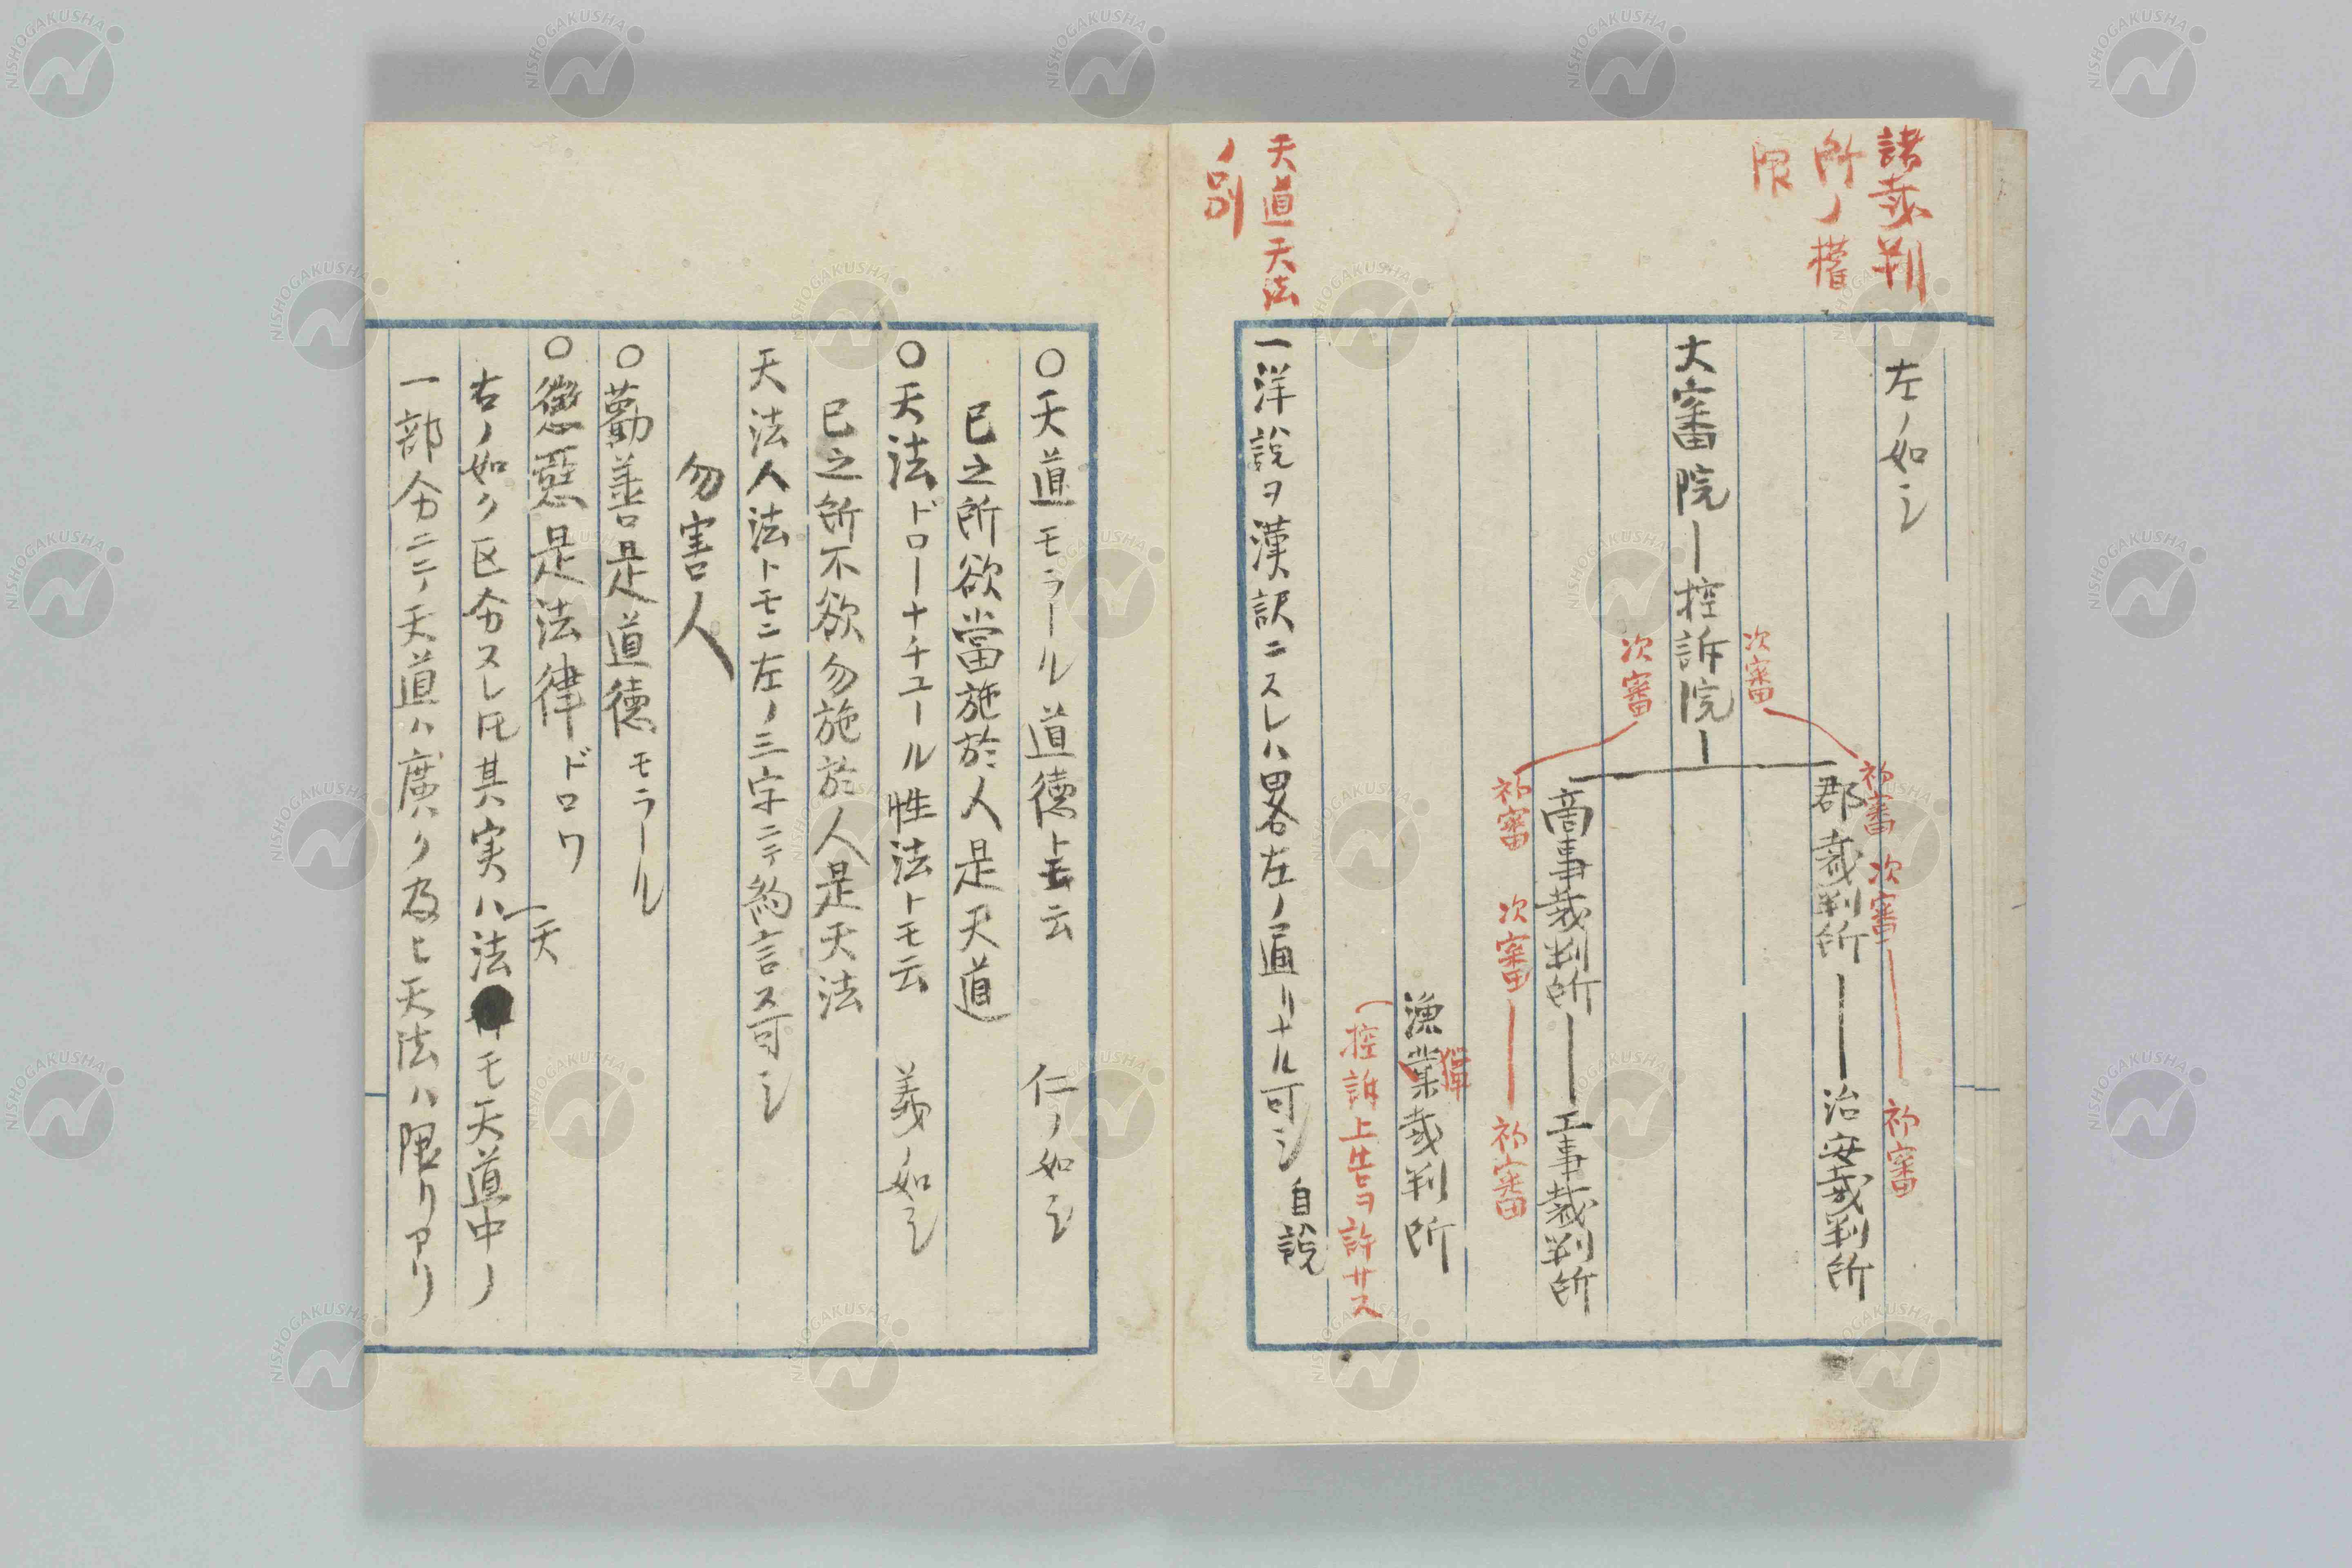 諸裁判
所ノ権
限
左ノ如シ
大審院ー控訴院ー
次審
次審
初審 次審ー初審
郡裁判所ー治安裁判所
初審 次審ー初審
商事裁判所ー工事裁判所
漁業裁判所
猟
控訴上告ヲ許サス
天道天法
ノ別
一洋説ヲ漢訳ニスレハ畧左ノ通リナル可シ 自説
○天道モラール 道徳トモ云 仁ノ如シ
已之所欲當施於人是天道
○天法ドローナチユール 性法トモ云 義ノ如シ
已之所不欲勿施於人是天法
天法人法トモニ左ノ三字ニテ約言ス可シ
勿害人
○勸善是道徳モラール
○懲惡是法律ドロワ
右ノ如ク区分スレ𪜈其実ハ法モ天道中ノ
天
一部分ニテ天道ハ廣ク及ヒ天法ハ限リアリ
NISHOGAKUSHA